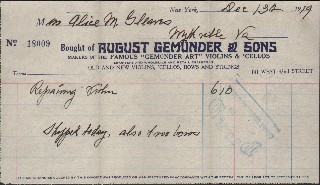 New York, Dec 13th 1919
Mrs Alice M Gleaves
Wytheville Va
No 18009
Bought of AUGUST GEMÜNDER & SONS
MAKERS OF THE FAMOUS "GEMÜNDER ART" VIOLINS & 'CELLOS
OLD AND NEW VIOLINS, 'CELLOS, BOWS AND STRINGS
Terms
141 WEST 42nd STREET
Repairing Violin 6 10
Shipped today, also two bows